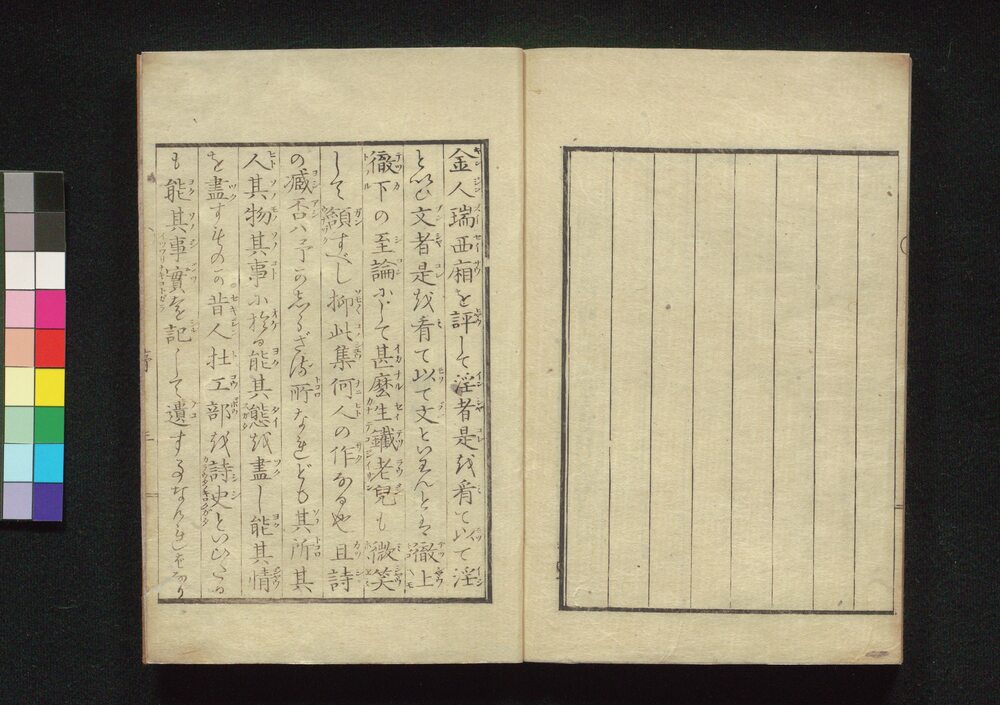 金人瑞西廂を評して淫者是を看て以て淫
といひ文者是を看て以て文といはんとは徹上
徹下の至論にして甚麼生鐵老兒も微笑
して頷すべし抑此集何人の作なるや且詩
の臧否ハ予がしらざる所なれども其所其
人其物其事に於る能其態を盡し能其情
を盡すものか昔人杜工部を詩史といひたる
も能其事實を記して遺す事なければなり
序 三